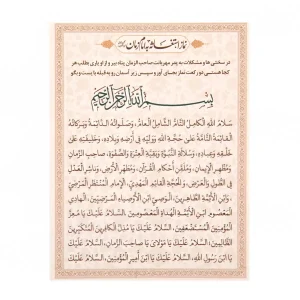 نماز استغاثه به امام زمان
در سختی ها و مشکلات به پدر مهربانت صاحب الزمان پناه ببر و از او یاری بطلب هر
کجا هستی دو رکعت نماز بجای آور و سپس زیر آسمان رو به قبله بایست و بگو
بسم الله الرحمن الرحیم
سَلامُ اللهِ الْكامِلُ التّامُّ الشّامِلُ الْعامُّ، وَصَلَواتُهُ الدّائِمَةُ وَبَرَكاتُهُ
الْقائِمَةُ التّامَّةُ عَلى حُجَّةِ اللهِ وَوَلِيِّهِ في اَرْضِهِ وَبِلادِهِ، وَخَليفَتِهِ عَلى
خَلْقِهِ وَعِبادِهِ، وَسُلالَةِ النُّبُوَّةِ وَبَقِيَّةِ الْعِتْرَةِ وَالصَّفْوَةِ، صاحِبِ الزَّمانِ
وَمُظْهِرِ الْايمانِ، وَمُلَقِّنِ اَحْكامِ الْقُرْآنِ، وَمُطَهِّرِ الْاَرْضِ، وَناشِرِ الْعَدْلِ
فِي الطُّولِ وَالْعَرْضِ، وَالْحُجَّةِ الْقائِمِ الْمَهْدِيِّ، الْاِمامِ الْمُنْتَظَرِ الْمَرْضِيِّ
وَابْنِ الْاَئِمَّةِ الطّاهِرينَ، الْوَصِيِّ ابْنِ الْاَوْصِياءِ الْمَرْضِيّينَ، الْهادِي
الْمَعْصُومِ، ابْنِ الْاَئِمَّةِ الْهُداةِ الْمَعْصُومينَ، السَّلامُ عَلَيْكَ يا مُعِزَّ
الْمُؤْمِنينَ الْمُسْتَضْعَفينَ، السَّلامُ عَلَيْكَ يا مُذِلَّ الْكافِرينَ الْمُتَكَبِّرينَ
الظّالِمينَ، السَّلامُ عَلَيْكَ يا مَوْلايَ يا صاحِبَ الزَّمانِ، السَّلامُ عَلَيْكَ
يَا بْنَ رَسُولِ اللهِ، السَّلامُ عَلَيْكَ يَا بْنَ اَميرِ الْمُؤْمِنينَ، السَّلامُ عَلَيْكَ